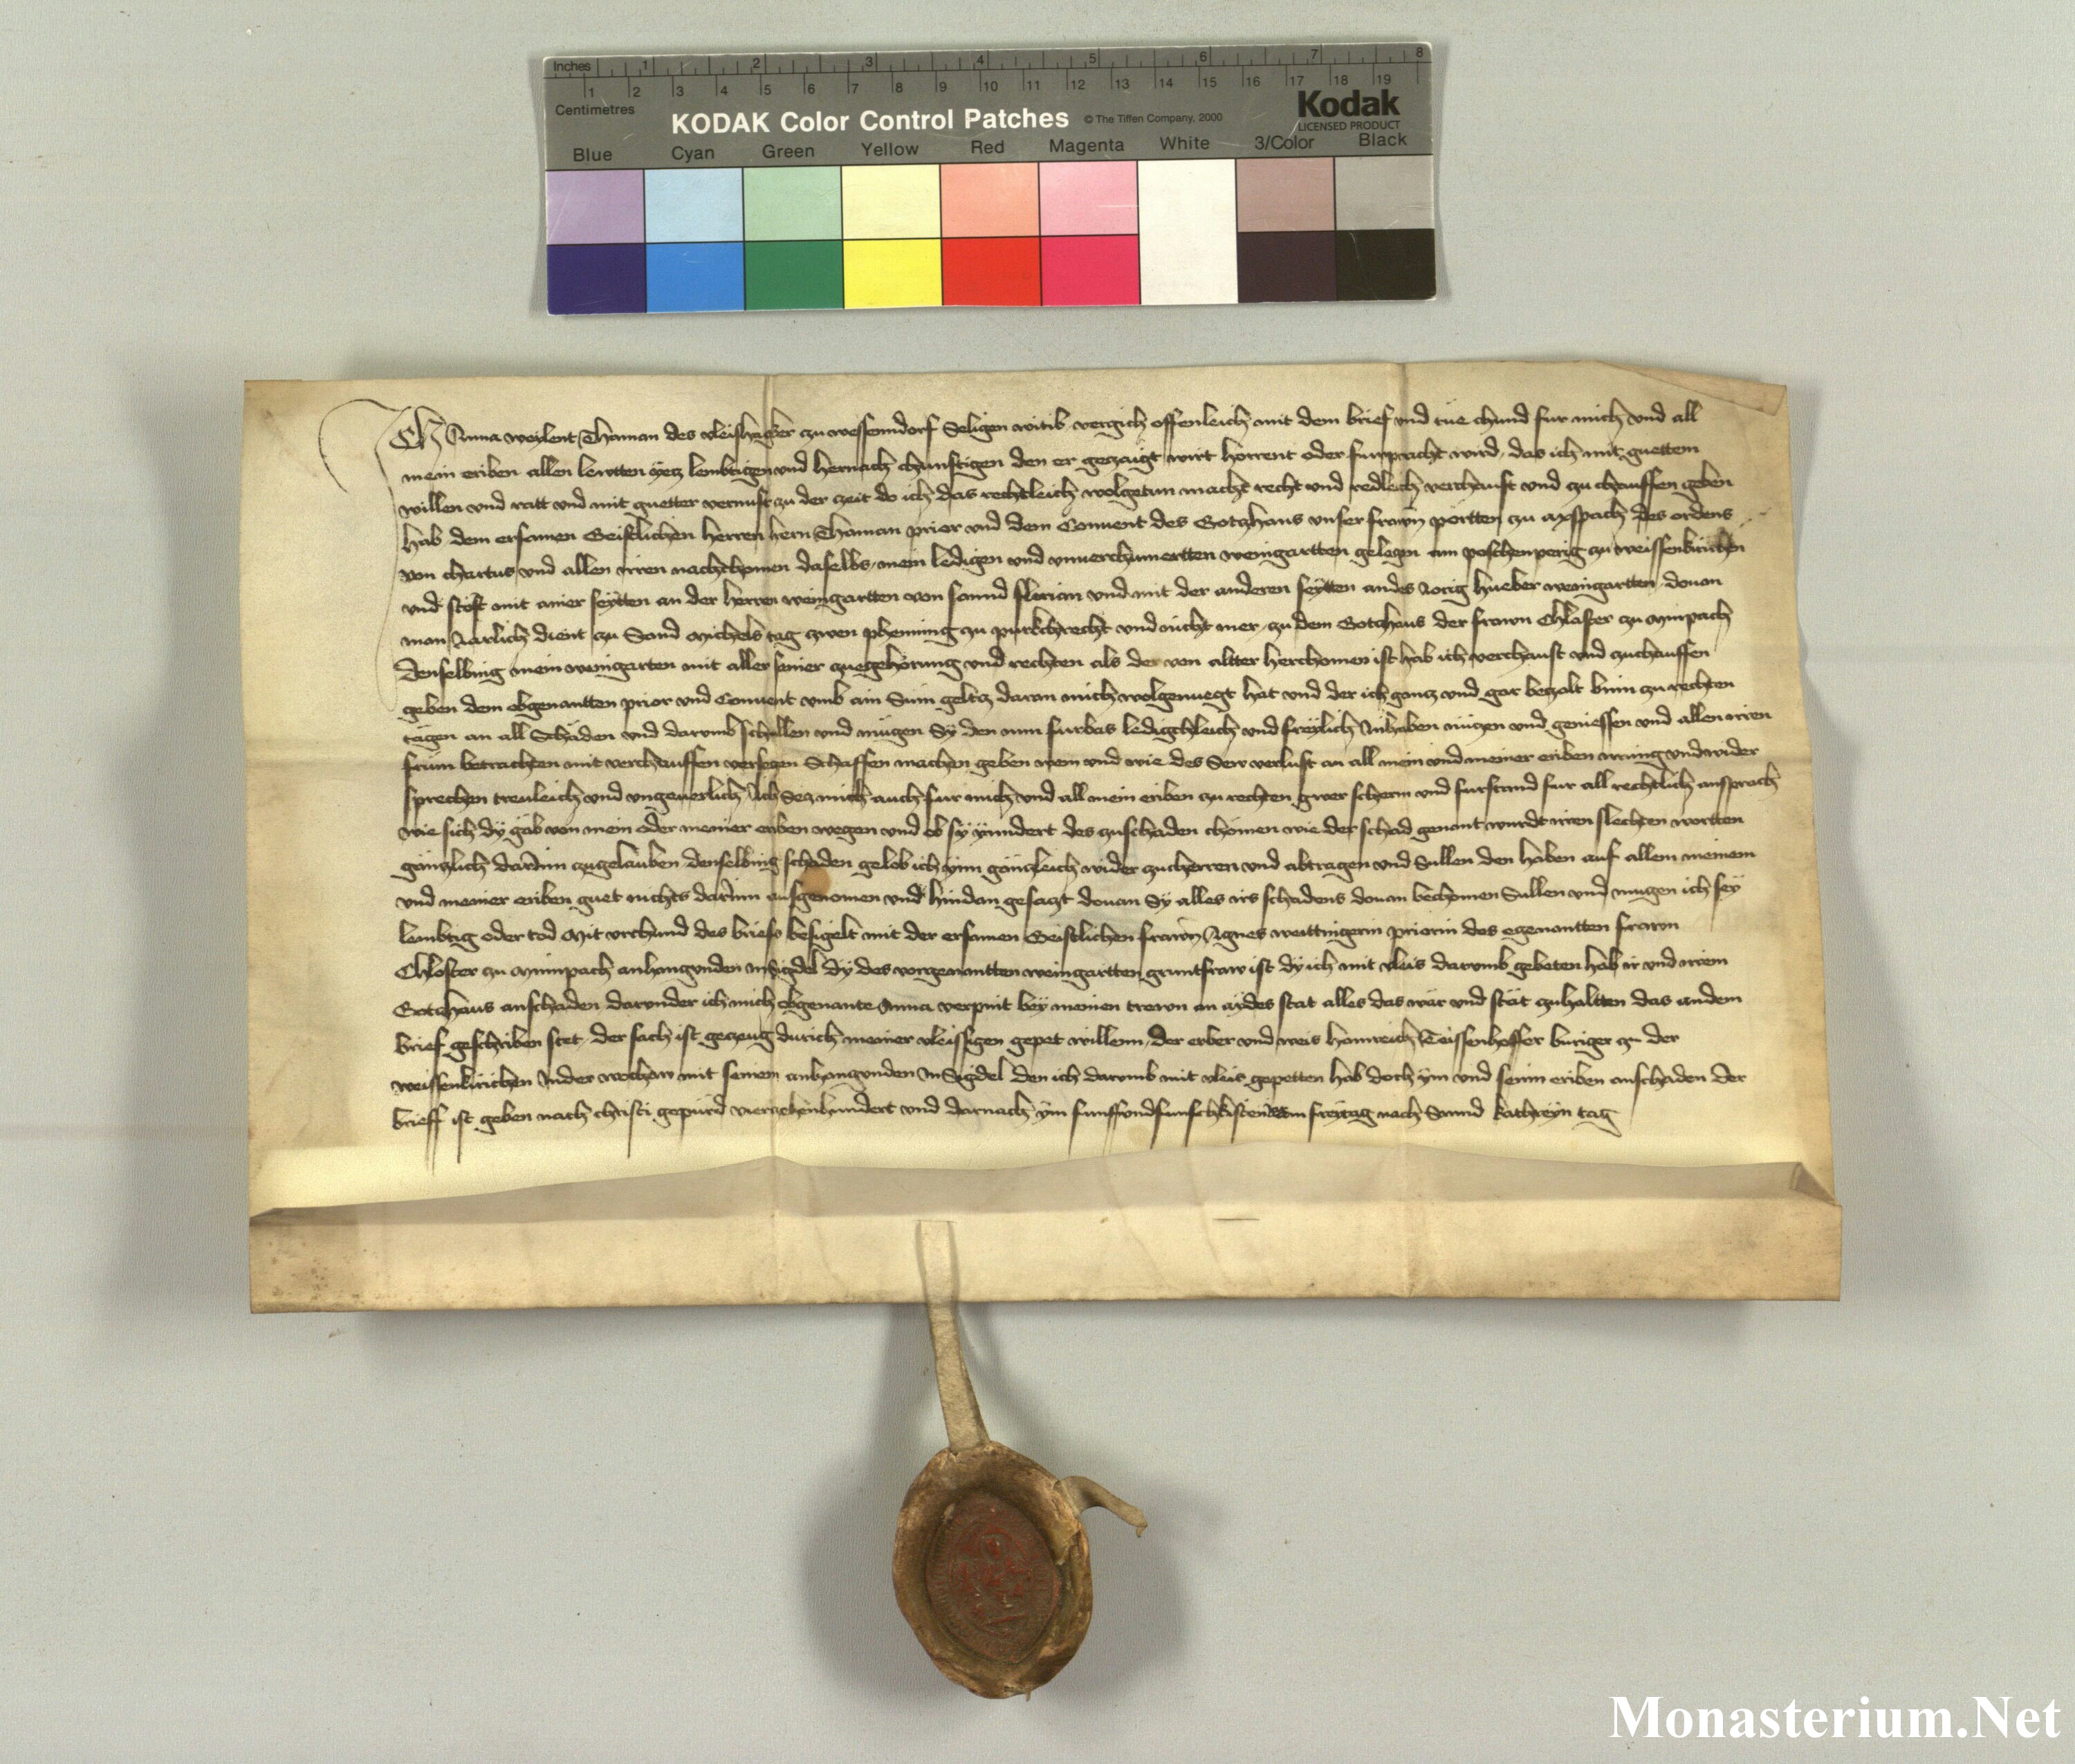 Inches 1 2 3 4 5 6 7 8
1 2 3 4 5 6 7 8 9 10 11 12 13 14 15 16 17 18 19
Centimetres
KODAK Color Control Patches © The Tiffen Company, 2000 Kodak
LICENSED PRODUCT
Blue Cyan Green Yellow Red Magenta White 3/Color Black
Ich Anna weylent Thaman des vleishakher zu wessenndorf Seligen witib vergich offenleich mit dem brief vnd tue chund fur mich vnd all
mein eriben allen lewtten yecz lembtigen vnd hernach chunftigen den er geczaigt wirt horrent oder furpracht wird das ich mit guettem
willen vnd ratt vnd mit guetter vernuft zu der zeit do ich das rechtleich wolgetun macht recht vnd redleich verchauft vnd zu chauffen geben
hab dem ersamen Geistlichen herren hern Thaman prior vnd dem Conuent des Gotzhaus vnser frawn portten zu axspach des ordens
von chartus vnd allen irren nachchomen daselbs mein ledigen vnd vnuerchumertten weingartten gelegen am poschenperig zu weissenkirichen
vnd stost mit ainer seytten an der herren weingartten von sannd florian vnd mit der anderen seytten an des Jorig hueber weingartten douon
man Jarlich dient zu Sand Michels tag zwen phenning zu purkchrecht vnd nicht mer zu dem Gotzhaus der frawn Chloster zu Minpach
denselbing mein weingarten mit aller seiner zuegehorung vnd rechten als der von altter herchomen ist hab ich verchauft vnd zuchauffen
geben dem obgenantten prior vnd Conuent vmb ain Sum geltz daran mich wolgenuegt hat vnd der ich gancz vnd gar beczalt bnin zu rechten
tagen an all Schaden vnd darumb schullen vnd mugen Sy den nun furbas ledigchleich vnd freylich Inhaben nuczen vnd geniessen vnd allen irren
frum betrachten mit verchauffen verseczen Schaffen machen geben wem vnd wie des Sew verlust an all mein vnd meiner eriben irrung vnd wider
sprechen treuleich vnd vngeuerlich Ich Secz mich auch fur mich vnd all mein eriben zu rechten gwer scherm vnd furstand fur all rechtlich ansprach
wie sich dy gab von mein oder meiner eriben wegen vnd ob sy yundert des zuschaden chomen wie der schad genant wurdt irren slechten wortten
ganczlich darinn zugelauben denselbing schaden gelob ich yinn ganczleich wider zucherren vnd abtragen vnd Sullen den haben auf allem meinem
vnd meiner eriben guet nichts darinn ausgenomen vnd hindan gesaczt douon Sy alles irs schadens douon bechomen Sullen vnd mugen ich sey
lembtig oder tod Mit vrchund des briefs besigelt mit der ersamen Geistlichen frawn Agnes priorin des egenantten frawn
Chloster zu Minnpach anhangunden Insigdel dy des vorgenantten weingartten gruntfraw ist dy ich mit vleis darumb gebeten hab ir vnd irrem
Gotzhaus anschaden darunder ich mich obgenante Anna verpint bey meinen trewn an aydes stat alles das war vnd stat zuhaltten das an dem
brief geschriben stet der sach ist gezeug durich meiner vleissigen gepet willenn der erber vnd weis hainreich Teissenhoffer buriger zu der
weissenkirichen In der wochaw mit seinem anhangunden InSigdel den ich darumb mit vleis gepetten hab doch ym vnd seinn eriben anschaden der
brieff ist geben nach christi gepurd vierzehenhundert vnd darnach ym funffvndfunfchkisten am freitag nach Sannd kathreyn tag
Monasterium.Net